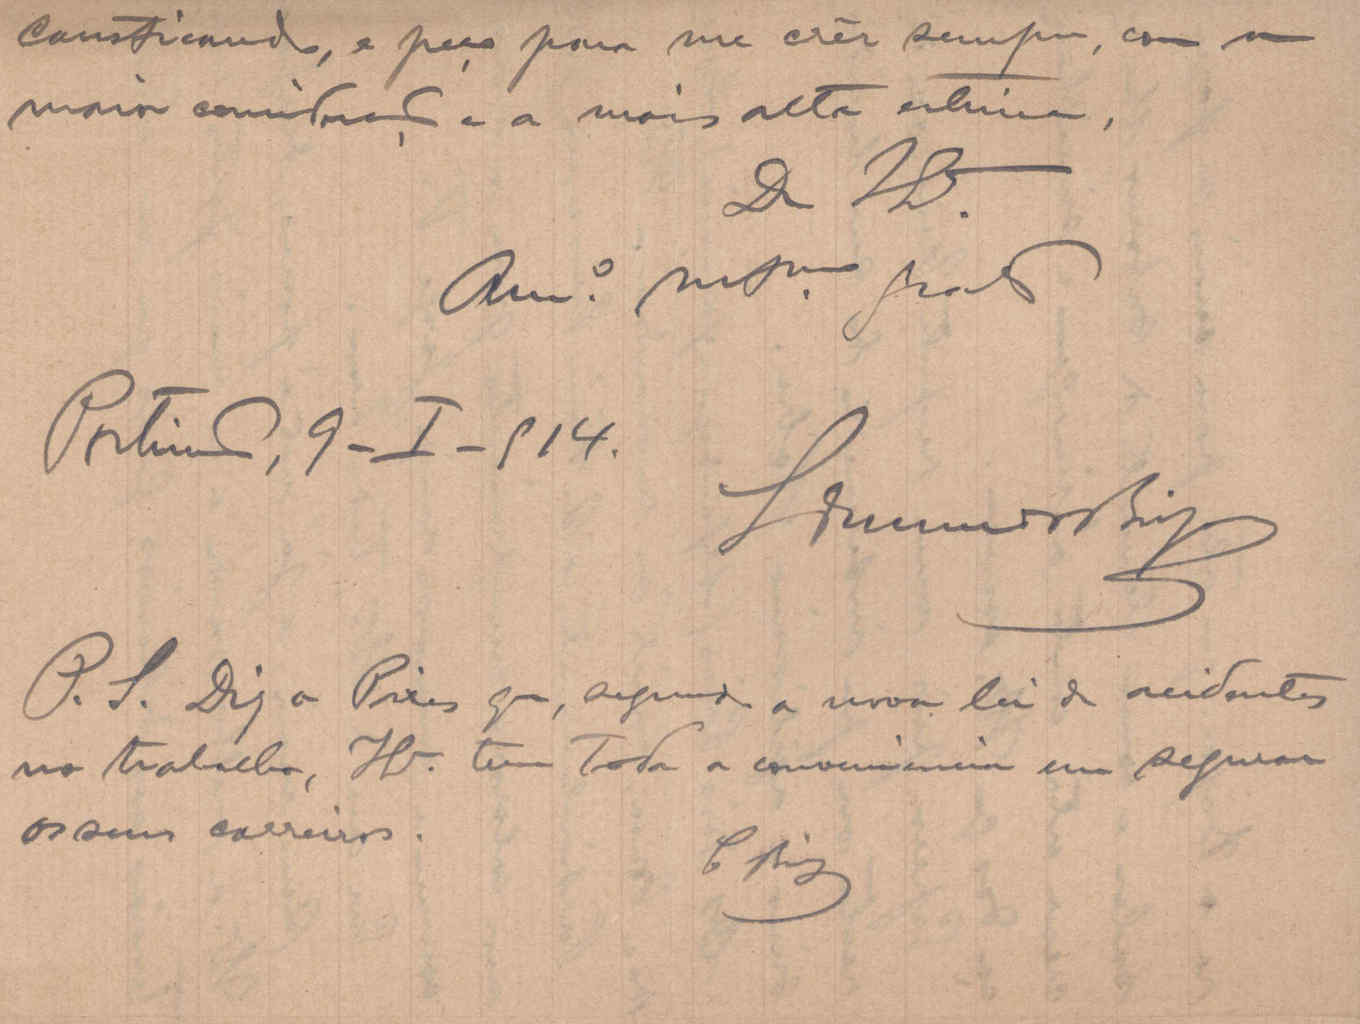 causticando, e peço para me crêr sempre, com a
maior consideração e a mais alta estima,
De V.
Am.º m.to grato
Portimão, 9-I-914.
P. S. Diz o Pires que, segundo a nova lei de acidentes
no trabalho, V. tem toda a conveniencia em segurar
os seus carreiros.